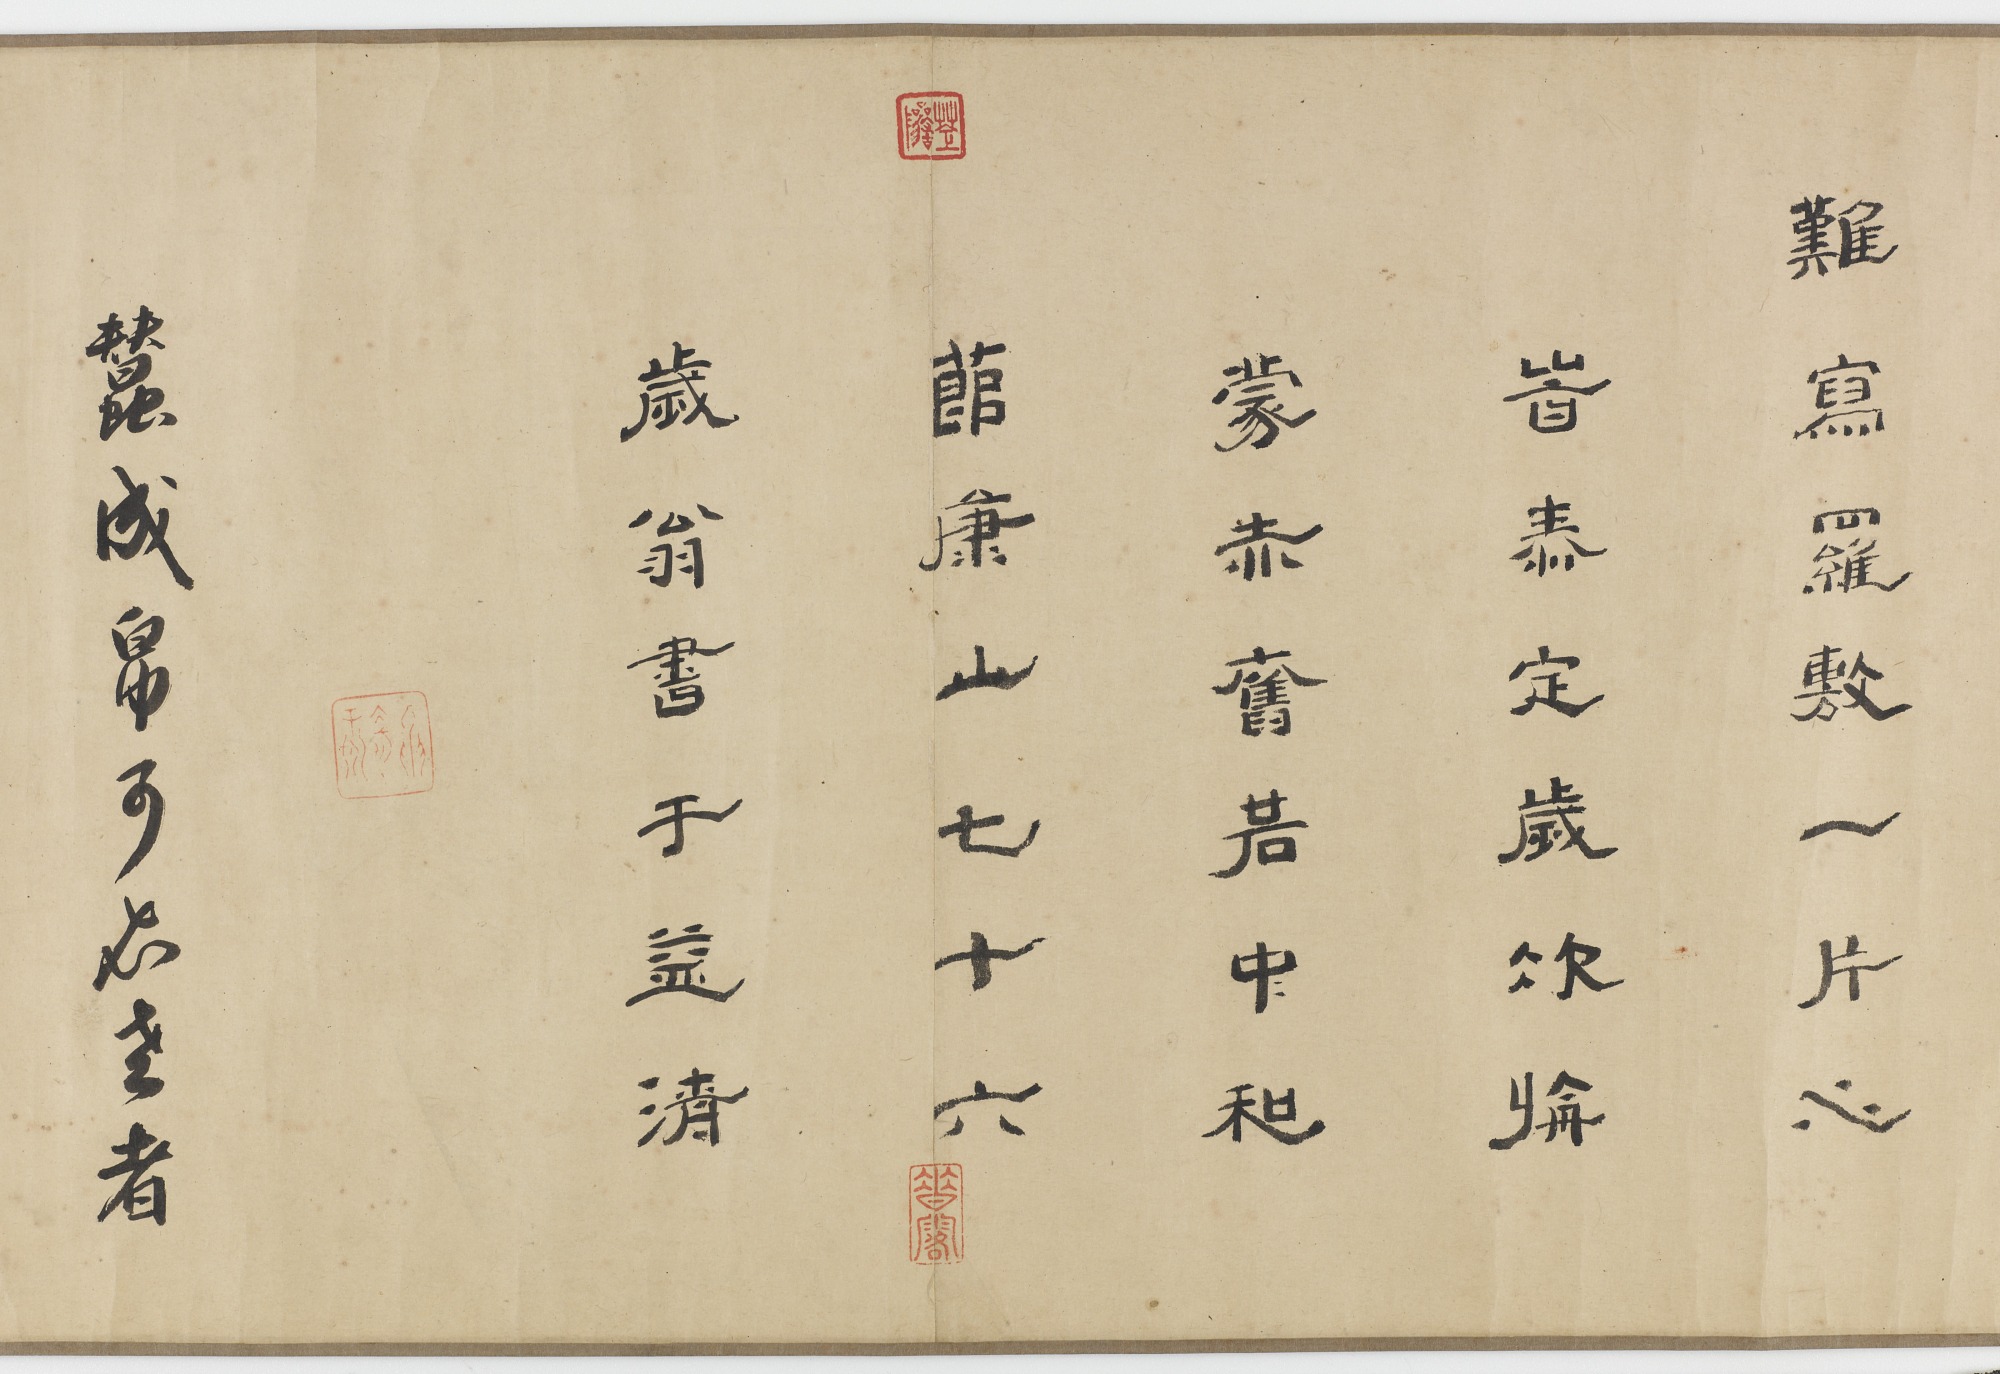 難寫羅敷一片心
旹泰定歲次
蒙赤奮若中和
節康山七十六
歲翁書于益濟
蠶成帛可
者